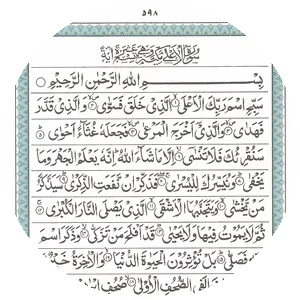 ٥٩٨
سورة الاعلى مكية وهي تسع عشرة اية
بسم الله الرحمن الرحيم
سبح اسم ربك الاعلى الذي خلق فسوى والذي قدر
فهدى والذي اخرج المرعى فجعله غثاء احوى
سنقرئك فلا تنسى الا ما شاء الله انه يعلم الجهر وما
يخفى ونيسرك لليسرى فذكر ان نفعت الذكرى سيذكر
من يخشى ويتجنبها الاشقى الذي يصلى النار الكبرى
ثم لا يموت فيها ولا يحيى قد افلح من تزكى وذكر اسم
فصلى بل تؤثرون الحيوة الدنيا والاخرة خير
الصحف الاولى صحف